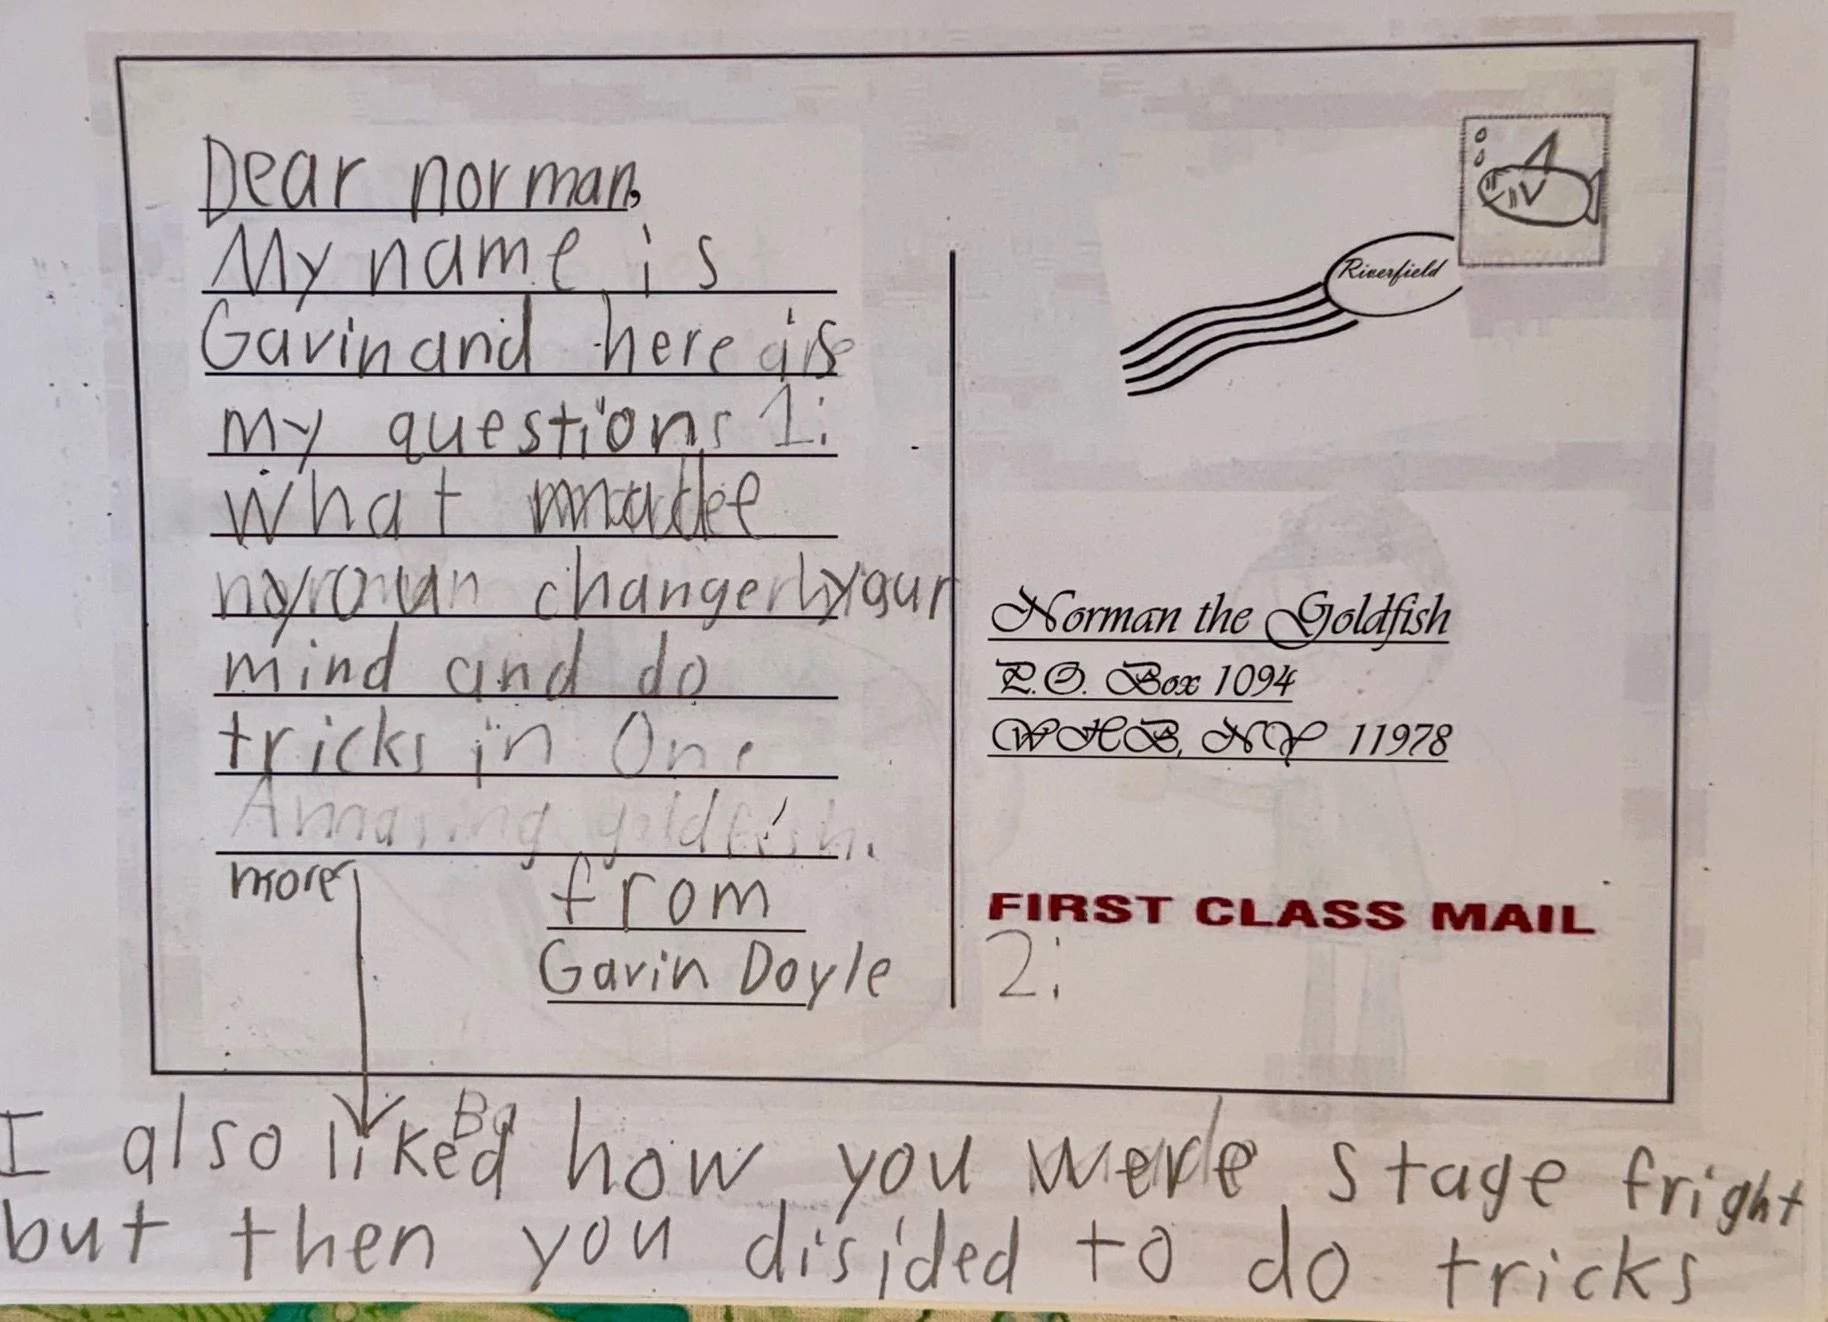 Dear norman,
My name is
Gavin and here is
my questions 1:
What made
changed your
mind and do
tricks in One
Amazing goldfish.
more
from
Gavin Doyle
Riverfield
Norman the Goldfish
P.O. Box 1094
WHB, NY 11978
FIRST CLASS MAIL
2:
I also liked how you were stage fright
but then you disided to do tricks